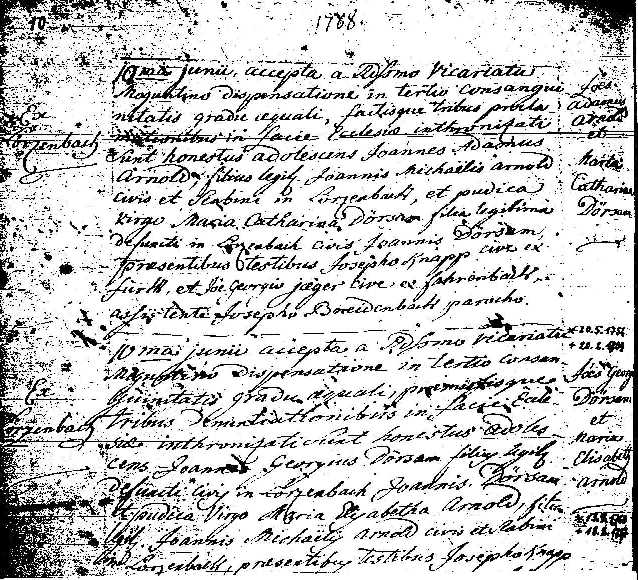 10
1788
10ma junii, accepta a Rdsmo Vicariatu
Moguntino dispensatione in tertio consangui
nitatis gradu æquali, factisque tribus procla
mationibus in facie Ecclesiæ inthronisati
sunt honestus adolescens Joannes Adamus
Arnold, filius legit. Joannis Michaelis arnold
civis et Scabini in Lörzenbach, et pudica
Virgo Maria Catharina Dörsam filia legitima
defuncti in Lörzenbach civis Joannis Dörsam,
præsentibus testibus Josepho Knapp cive ex
fürth, et Joe Georgio jæger cive ex fahrenbach,
assistente Josepho Breidenbach parocho.
Ex
Lörzenbach
Joes
Adamus
Arnold
et
Maria
Catharina
Dörsam
10 mai junii accepta a Rdsmo Vicariatu
Moguntino dispensatione in tertio consan
guinitatis gradu æquali, præmissisque
tribus denuntiationibus in facie Eccle
siæ inthronisati sunt honestus adoles
cens Joannes Georgius Dörsam filius legit.
defuncti civis in Lörzenbach Joannis Dörsam
et pudica Virgo Maria Elisabetha Arnold, filia
legit. Joannis Michaelis arnold civis et Scabini
in Lörzenbach, præsentibus testibus Josepho Knapp
Ex
Lörzenbach
Joes Georg
Dörsam
et
Maria
Elisabeth
arnold